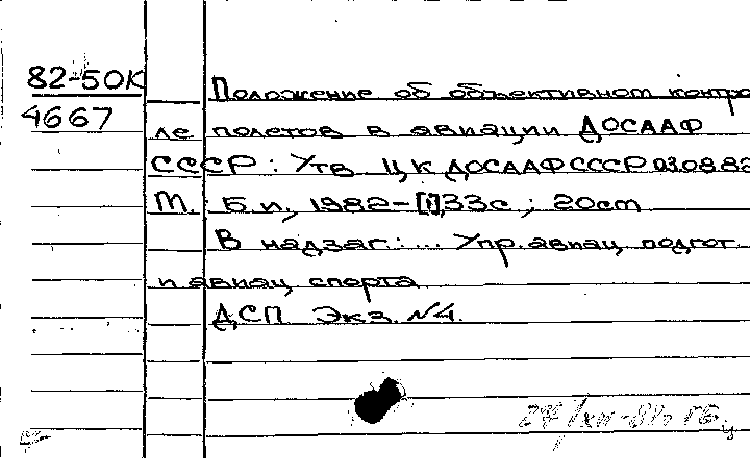 82-50К
4667
Положение об объективном контро
ле полетов в авиации ДОСААФ
СССР: Утв ЦК ДОСААФ СССР 03.08.82
М. Б.и., 1982-[1],33с ; 20см
В надзаг.: ... Упр. авиац подгот.
и авиац спорта
ДСП Экз N4.